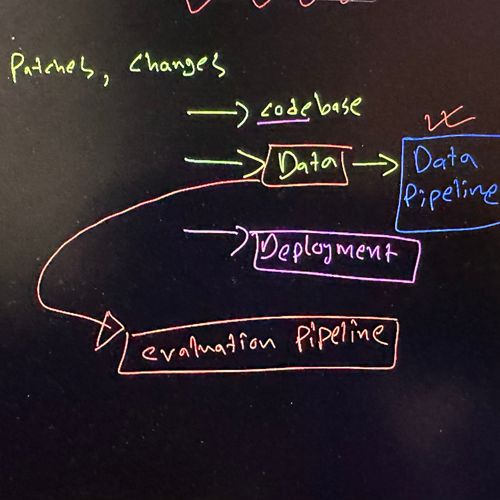 Patches, changes
codebase
Data
Data
Pipeline
Deployment
evaluation Pipeline